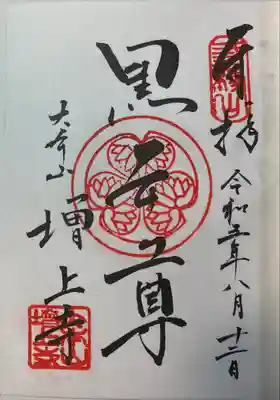 奉拝
令和五年八月十二日
黒本尊
大本山
増上寺